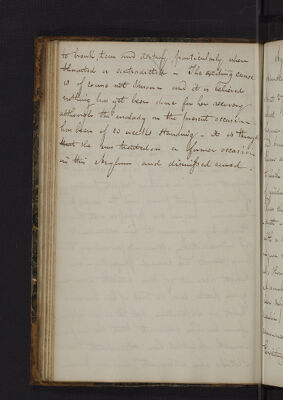 to break them and destroy, particularly when
thwarted or contradicted - The exciting cause
is of course not known and it is believed
nothing has yet been done for her recovery
although the malady on the present occasion
has been of 10 weeks standing - It is thought
that she was treated on a former occasion
in this Asylum and dismissed cured.